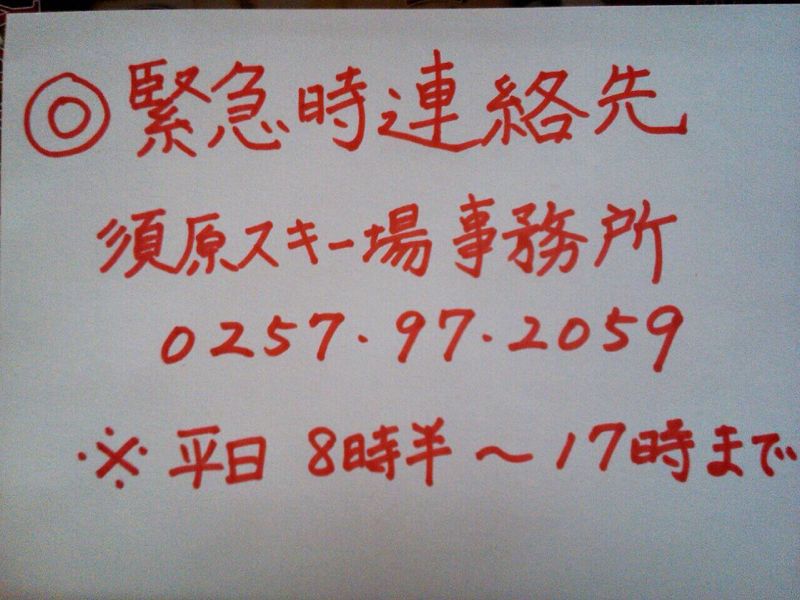 ◎緊急時連絡先
須原スキー場事務所
0257・97・2059
※平日 8時半〜17時まで